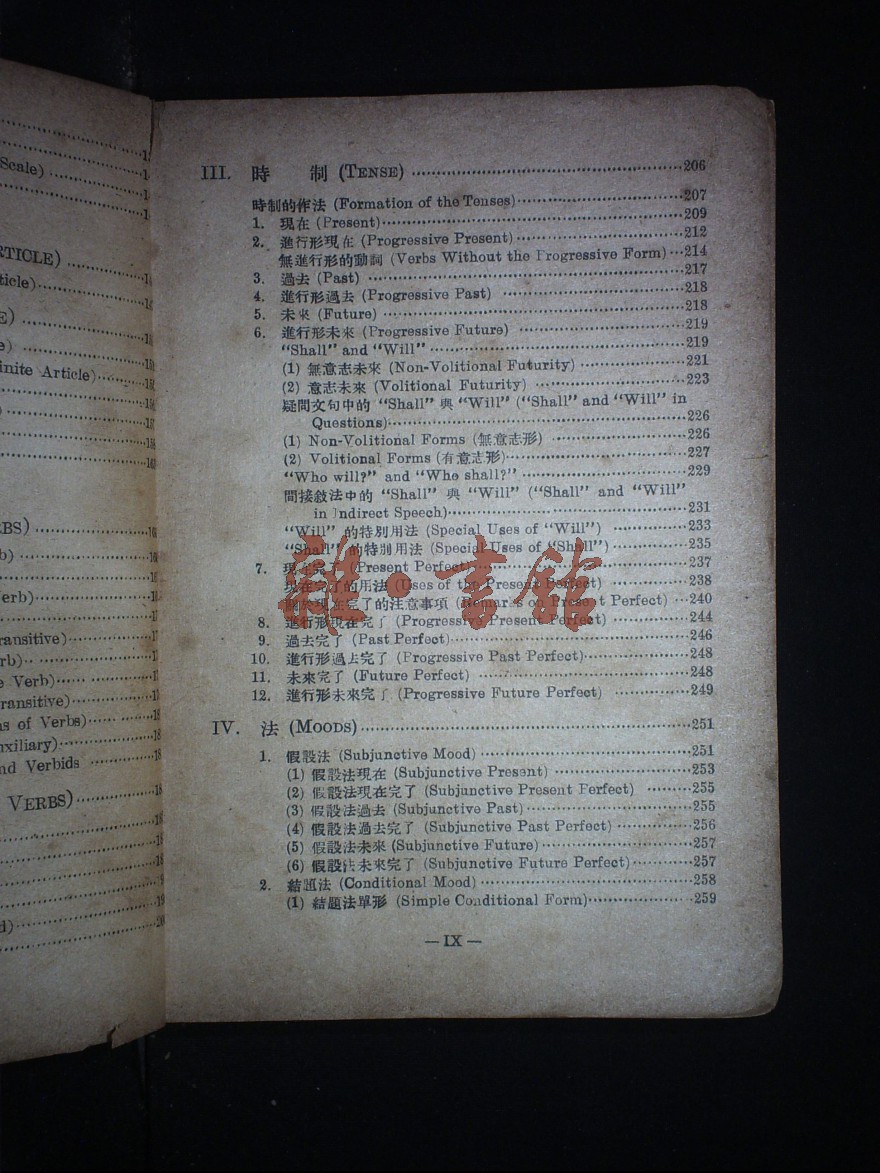 Scale)
RTICLE)
ticle)
E)
e)
inite Article)
)
RBS)
b)
erb)
ransitive)
rb)
e Verb)
ransitive)
ns of Verbs)
uxiliary)
nd Verbids
VERBS)
d)
III. 時 制 (TENSE) 206
時制的作法 (Formation of the Tenses) 207
1. 現在 (Present) 209
2. 進行形現在 (Progressive Present) 212
無進行形的動詞 (Verbs Without the Progressive Form) 214
3. 過去 (Past) 217
4. 進行形過去 (Progressive Past) 218
5. 未來 (Future) 218
6. 進行形未來 (Progressive Future) 219
“Shall” and “Will” 219
(1) 無意志未來 (Non-Volitional Futurity) 221
(2) 意志未來 (Volitional Futurity) 223
疑問文句中的 “Shall” 與 “Will” (“Shall” and “Will” in
Questions) 226
(1) Non-Volitional Forms (無意志形) 226
(2) Volitional Forms (有意志形) 227
“Who will?” and “Who shall?” 229
間接敍法中的 “Shall” 與 “Will” (“Shall” and “Will”
in Indirect Speech) 231
“Will” 的特別用法 (Special Uses of “Will”) 233
“Shall” 的特別用法 (Special Uses of “Shall”) 235
7. 現在完了 (Present Perfect) 237
現在完了的用法 (Uses of the Present Perfect) 238
關於現在完了的注意事項 (Remarks on Present Perfect) 240
8. 進行形現在完了 (Progressive Present Perfect) 244
9. 過去完了 (Past Perfect) 246
10. 進行形過去完了 (Progressive Past Perfect) 248
11. 未來完了 (Future Perfect) 248
12. 進行形未來完了 (Progressive Future Perfect) 249
IV. 法 (MOODS) 251
1. 假設法 (Subjunctive Mood) 251
(1) 假設法現在 (Subjunctive Present) 253
(2) 假設法現在完了 (Subjunctive Present Perfect) 255
(3) 假設法過去 (Subjunctive Past) 255
(4) 假設法過去完了 (Subjunctive Past Perfect) 256
(5) 假設法未來 (Subjunctive Future) 257
(6) 假設法未來完了 (Subjunctive Future Perfect) 257
2. 結題法 (Conditional Mood) 258
(1) 結題法單形 (Simple Conditional Form) 259
— IX —
雜·書館